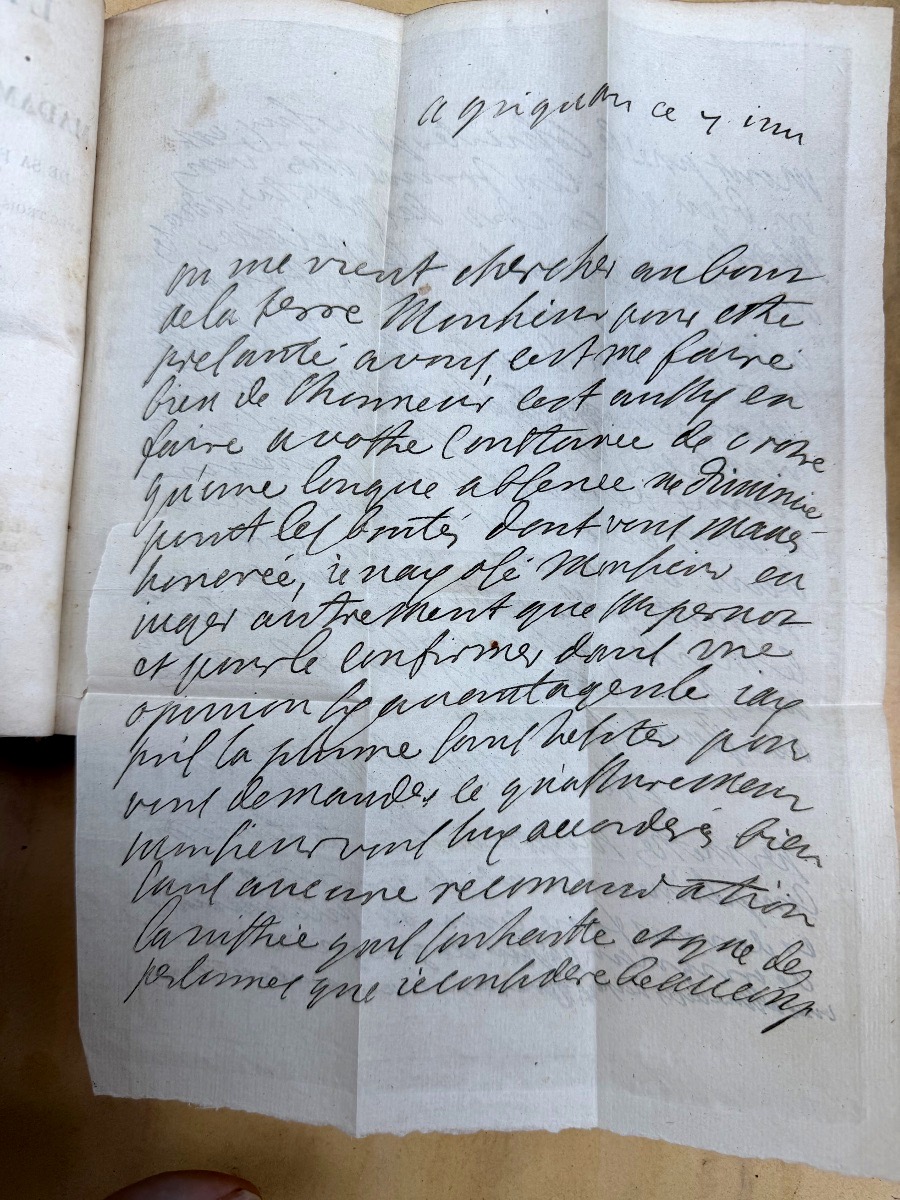 a grignan ce 7 iuin
on me vient chercher au bout
de la terre Monsieur pour estre
presantée a vous, c'est me faire
bien de l'honneur, c'est aussy en
faire a vostre constance de croire
qu'une longue absence ne diminue
point les bontés dont vous m'aués
honorée, ie n'ay osé Monsieur en
iuger autrement que
et pour le confirmer dans une
opinion sy auantageuse iay
pris la plume sans hesiter pour
vous demander ce qu'assurement
monsieur vous luy accorderés bien
sans aucune recomandation
la iustice qu'il souhaitte et que des
personnes que ie considere beaucoup